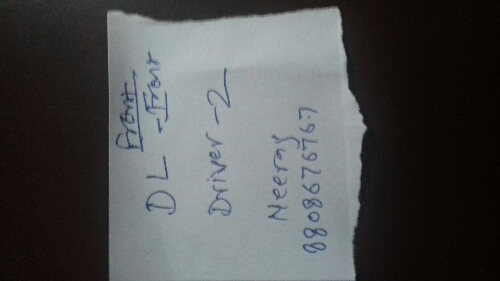 Front
DL - Front
Driver - 2
Neeraj
8808676767